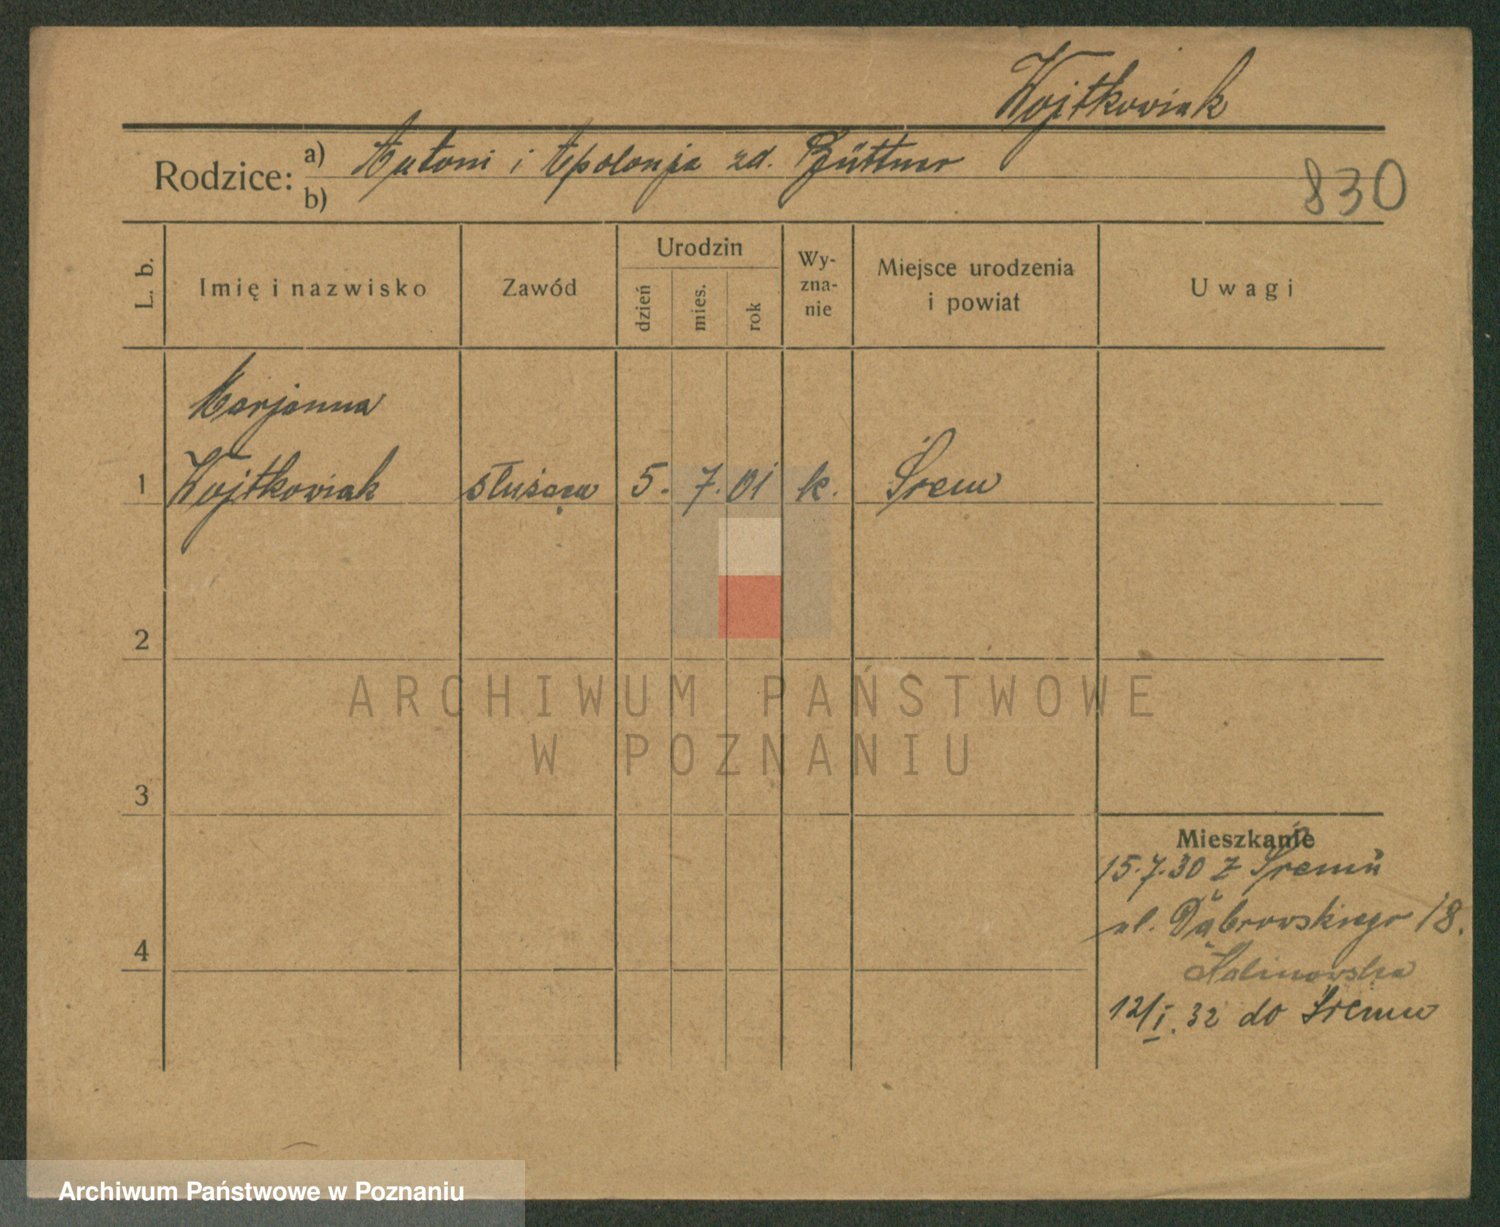 Wojtkowiak
Rodzice: a) Antoni i Apolonja zd. Büttner
b)
830
L. b.
Imię i nazwisko
Zawód
Urodzin
dzień
mies.
rok
Wy-
zna-
nie
Miejsce urodzenia
i powiat
Uwagi
Marjanna
1 Wojtkowiak służąca 5. 7. 01 k. Śrem
2
3
4
Mieszkanie
15.7.30 z Śremu
ul. Dąbrowskiego 18.
Kalinowska
12/I. 32 do Śremu
ARCHIWUM PAŃSTWOWE
W POZNANIU
Archiwum Państwowe w Poznaniu